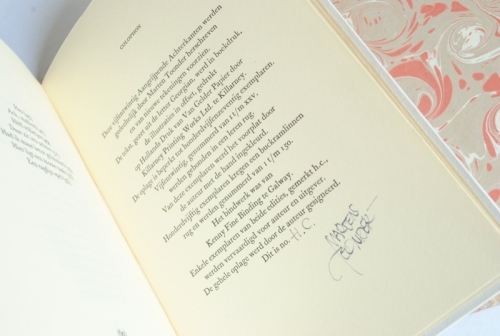 COLOFON
Deze vijfentwintig Aangrijpende Achterkanten werden
gedeeltelijk door Marten Toonder herschreven
en van nieuwe tekeningen voorzien.
De tekst, gezet uit de letter Georgian, werd in boekdruk,
de illustraties in offset, gedrukt
op Hollands Druk van Van Gelder Papier door
Killarney Printing Works Ltd. te Killarney.
De oplage is beperkt tot honderdvijfenzeventig exemplaren.
Vijfentwintig, genummerd van I t/m XXV,
werden gebonden in een leren rug.
Van deze exemplaren werd het voorplat door
de auteur met de hand ingekleurd.
Honderdvijftig exemplaren kregen een buckramlinnen
rug en werden genummerd van 1 t/m 150.
Het bindwerk was van
Kenny Fine Binding te Galway.
Enkele exemplaren van beide edities, gemerkt h.c.,
werden vervaardigd voor auteur en uitgever.
De gehele oplage werd door de auteur gesigneerd.
Dit is no. H.C.
MARTEN
TOONDER